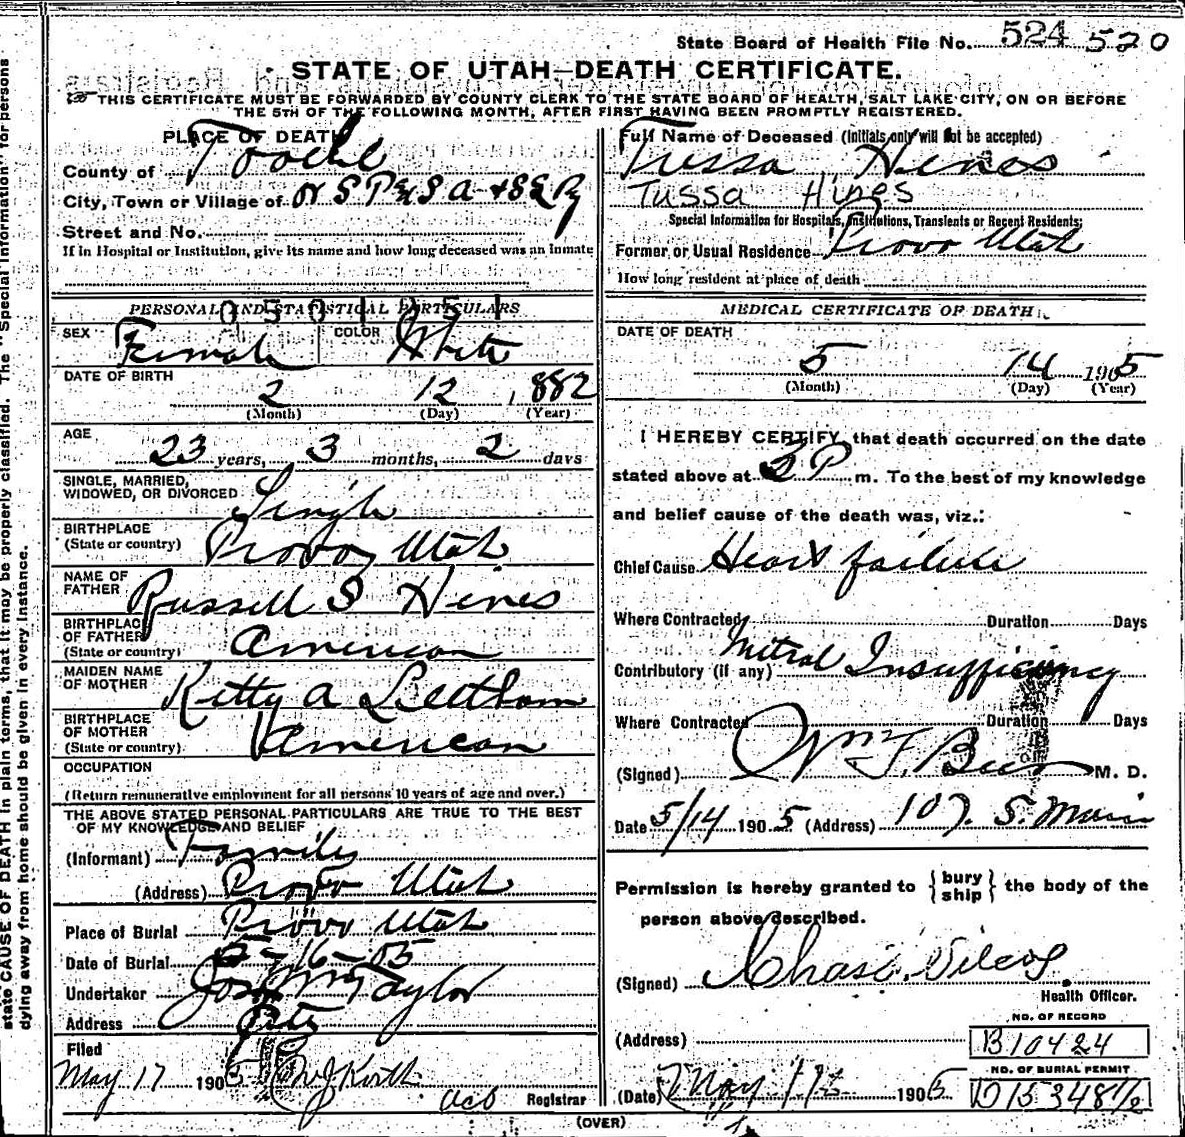 State Board of Health File No. 524 520
STATE OF UTAH—DEATH CERTIFICATE.
THIS CERTIFICATE MUST BE FORWARDED BY COUNTY CLERK TO THE STATE BOARD OF HEALTH, SALT LAKE CITY, ON OR BEFORE
THE 5TH OF THE FOLLOWING MONTH, AFTER FIRST HAVING BEEN PROMPTLY REGISTERED.
PLACE OF DEATH
County of Tooele
City, Town or Village of
Street and No.
If in Hospital or Institution, give its name and how long deceased was an inmate
PERSONAL AND STATISTICAL PARTICULARS
SEX Female COLOR White
DATE OF BIRTH
2 12 1882
(Month) (Day) (Year)
AGE
23 years, 3 months, 2 days
SINGLE, MARRIED,
WIDOWED, OR DIVORCED Single
BIRTHPLACE
(State or country) Provo, Utah
NAME OF
FATHER Russell S Hines
BIRTHPLACE
OF FATHER American
(State or country)
MAIDEN NAME
OF MOTHER Kitty A Leetham
BIRTHPLACE
OF MOTHER American
(State or country)
OCCUPATION
(Return remunerative employment for all persons 10 years of age and over.)
THE ABOVE STATED PERSONAL PARTICULARS ARE TRUE TO THE BEST
OF MY KNOWLEDGE AND BELIEF
(Informant) Family
(Address) Provo Utah
Place of Burial Provo Utah
Date of Burial 5-16-05
Undertaker Jos Wm Taylor
Address City
Filed
May 17 1905
Registrar
(OVER)
Full Name of Deceased (Initials only will not be accepted)
Tussa Hines
Tussa Hines
Special Information for Hospitals, Institutions, Transients or Recent Residents:
Former or Usual Residence Provo Utah
How long resident at place of death
MEDICAL CERTIFICATE OF DEATH
DATE OF DEATH
5 14 1905
(Month) (Day) (Year)
I HEREBY CERTIFY, that death occurred on the date
stated above at 3 P m. To the best of my knowledge
and belief cause of the death was, viz.:
Chief Cause Heart failure
Where Contracted Duration Days
Contributory (if any) Mitral Insufficiency
Where Contracted Duration Days
(Signed) Wm F. Beer M. D.
Date 5/14 1905 (Address) 107. S. Main
Permission is hereby granted to { bury ship } the body of the
person above described.
(Signed)
Health Officer.
(Address)
NO. OF RECORD
B10424
NO. OF BURIAL PERMIT
(Date) May 1905 D15348 1/2
state CAUSE OF DEATH in plain terms, that it may be properly classified. The "Special Information" for persons
dying away from home should be given in every instance.